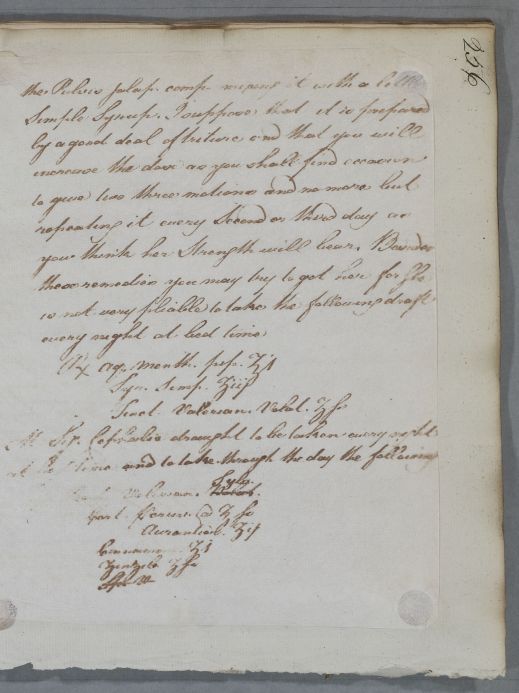 256
the Pulvis Jalap. comp. mixing it with a little
Simple Syrup. I suppose that it is prepared
by a good deal of triture and that you will
increase the dose as you shall find occasion
to give two three motions and no more but
repeating it every second or third day as
you think her strength will bear. Besides
these remedies you may try to get her for she
is not very pliable to take the following draft
every night at bed time
℞ aq. menth. pip. ℥j
Syr. Simp. ʒiiſs
Tinct. Valerian. Volat. ʒſs
M. ft. Cephalic draught to be taken every night
at bed time and to take through the day the following
Valerian. Sylv.
Cort. Peruv. @ ℥ſs
Aurantior. ʒiſs
Cinnamom. ʒj
Zinzib. ʒſs